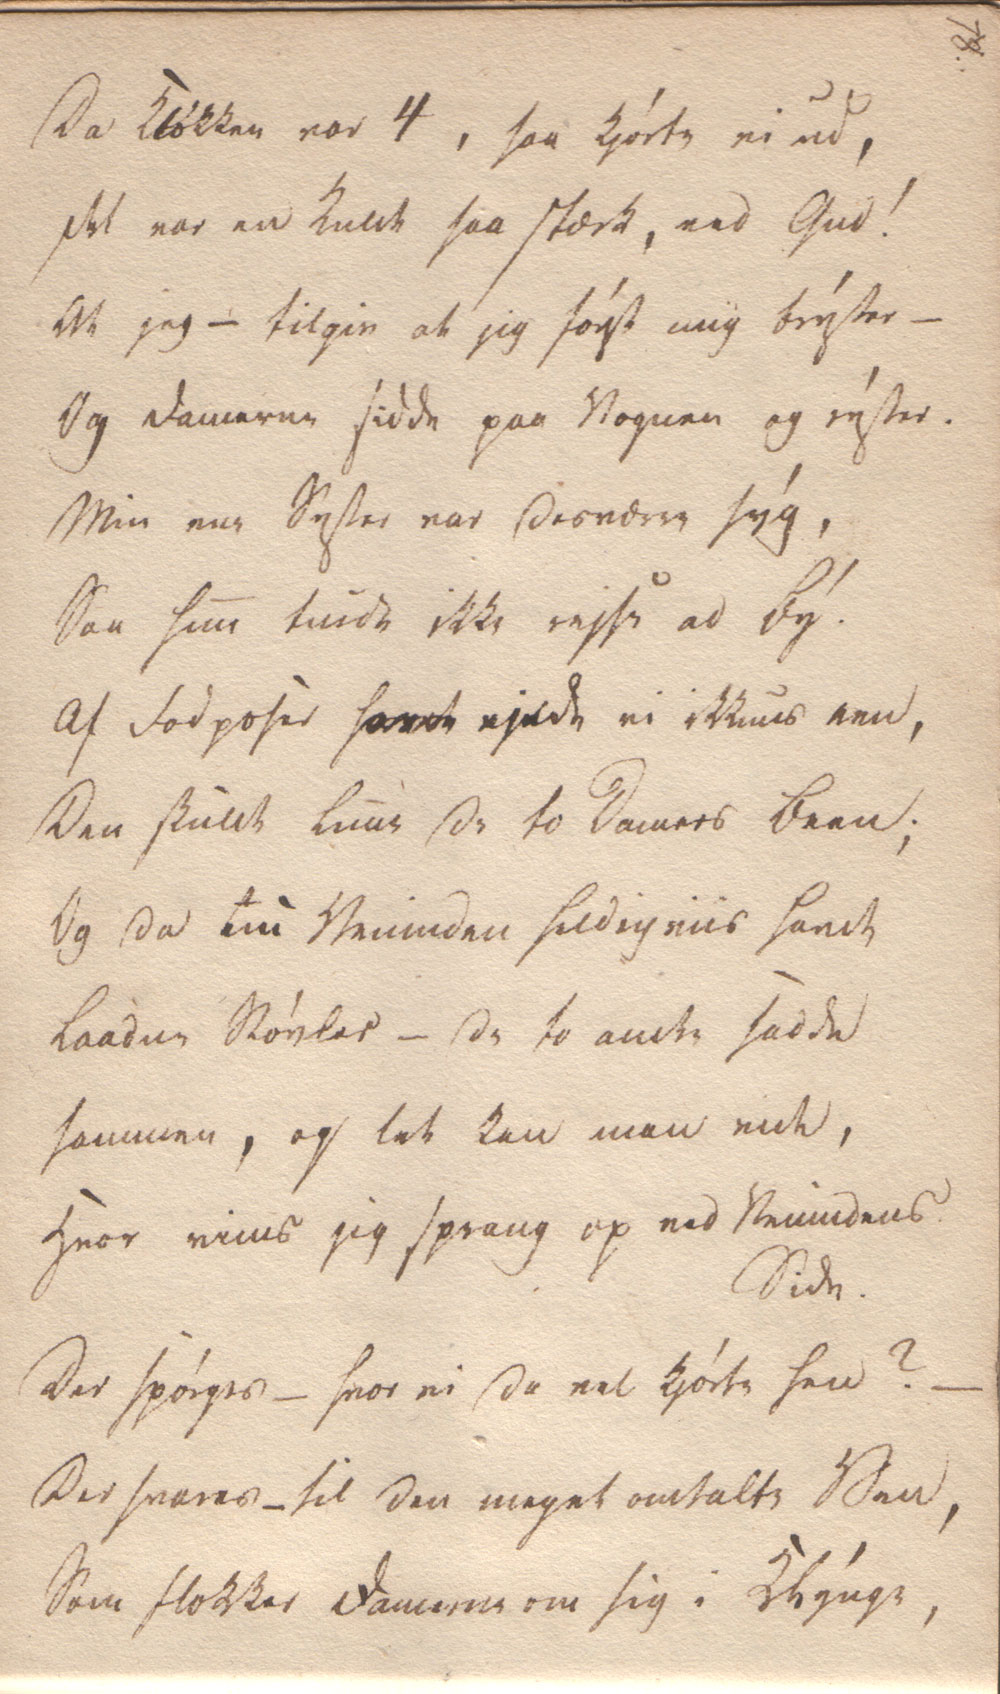 Da Klókken var 4, saa kjórte vi ud,
Det var en Kulde saa stærk, ved Gud!
At jeg – tilgiv at jeg fórst mig brýster –
Og Damerne sidde paa Vognen og rýster.
Min ene Syster var desværre sýg,
Saa hun turde ikke rejse ad Bý.
Af Fodposer havde ejede vi ikkuns een,
Den skulde lune de to Damers Been;
Og da nu Veninden heldigviis havde
Laadne Stóvler – de to andre sadde
sammen, og let kan man vide,
Hvor viims jeg sprang op ved Venindens
Side.
Der spórges – hvor vi da vel kjórte hen? –
Der svares – til den meget omtalte Ven,
Som flokker Damerne om sig i Klýnge,